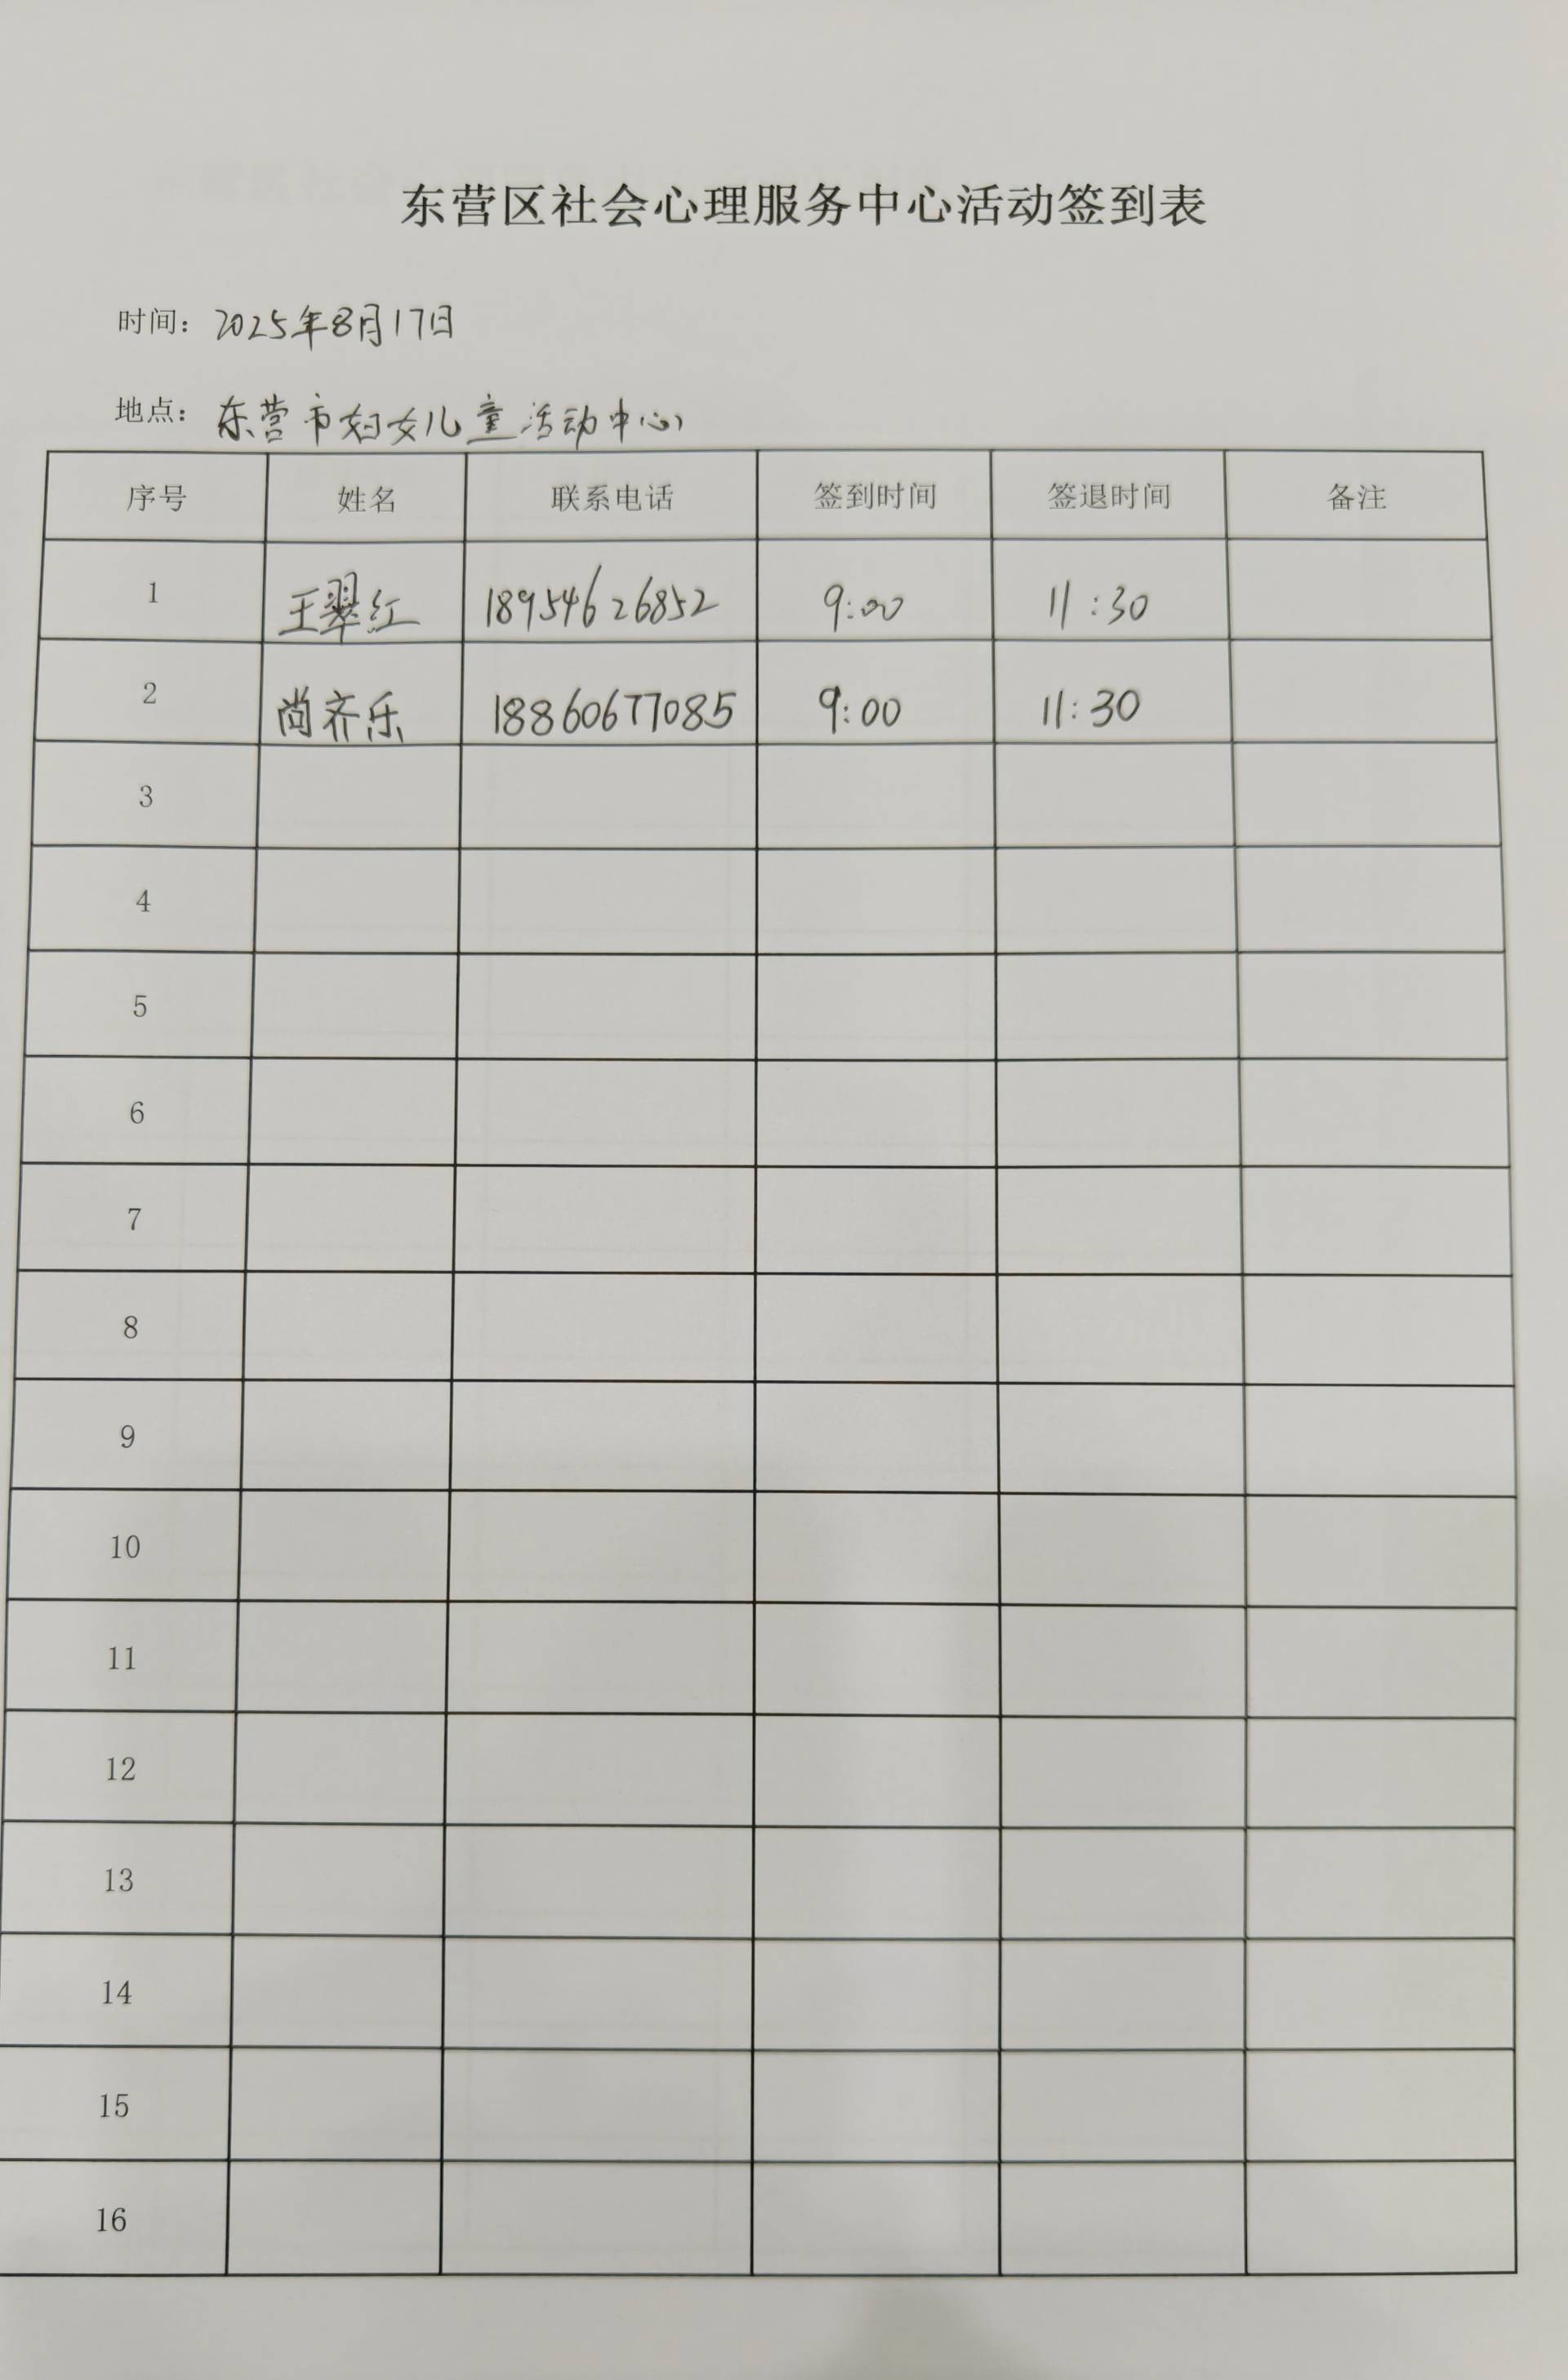 东营区社会心理服务中心活动签到表
时间: 2025年8月17日
地点: 东营市妇女儿童活动中心
序号 姓名 联系电话 签到时间 签退时间 备注
1 王翠红 18954626852 9:00 11:30
2 尚齐乐 18860677085 9:00 11:30
3
4
5
6
7
8
9
10
11
12
13
14
15
16